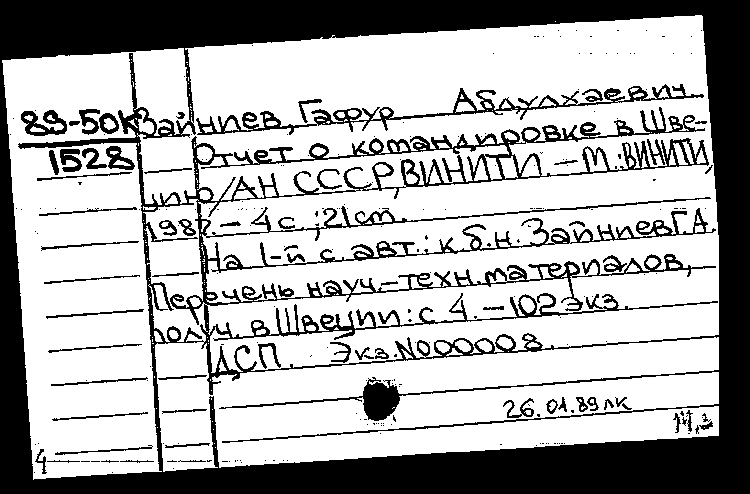 89-50К
1528
Зайниев, Гафур Абдулхаевич
Отчет о командировке в Шве-
цию/АН СССР, ВИНИТИ. – М.: ВИНИТИ,
1987. – 4 с.; 21 ст.
На 1-й с. авт.: к.б.н. Зайниев Г.А.
Перечень науч.-техн. материалов,
получ. в Швеции: с 4. – 102 экз.
ДСП. Экз. N000008.
26.01.89 лк
4